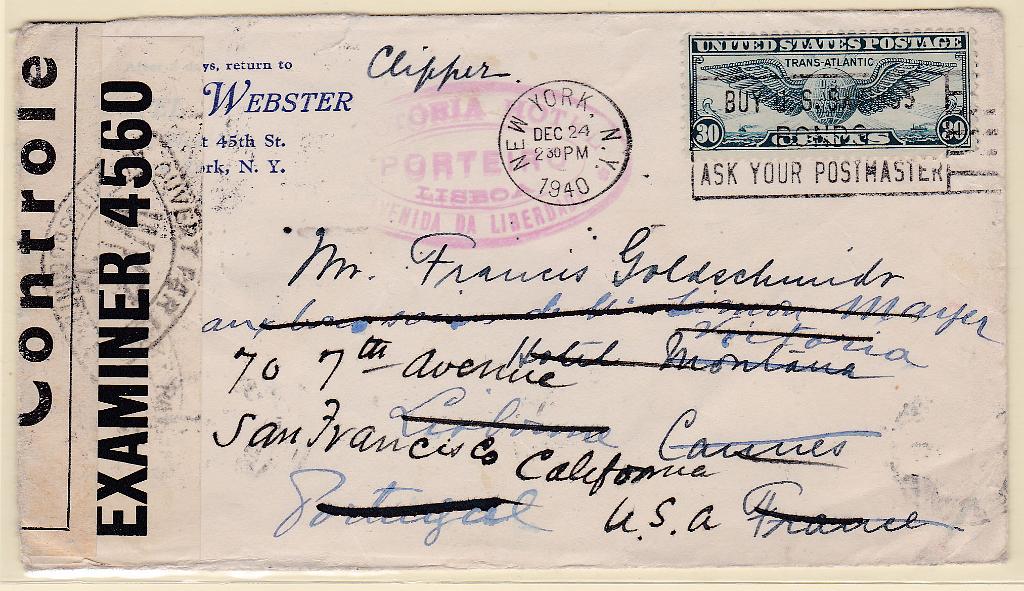 Controle
EXAMINER 4560
ys, return to
WEBSTER
t 45th St.
rk, N. Y.
Clipper.
ORIA HOT
PORTE
LISBOA
ENIDA DA LIBERDA
NEW YORK, N.Y.
DEC 24
2 30 PM
1940
UNITED STATES POSTAGE
TRANS-ATLANTIC
BUY U.S. SAVINGS
BONDS
30 CENTS 30
ASK YOUR POSTMASTER
OUVERT PAR
Mr. Francis Goldschmidt
aux bons soins de Mr Simon Mayer
Victoria
70 7th avenue Hotel Montana
Lisbonne
San Francisco Cannes
California
Portugal U.S.a France